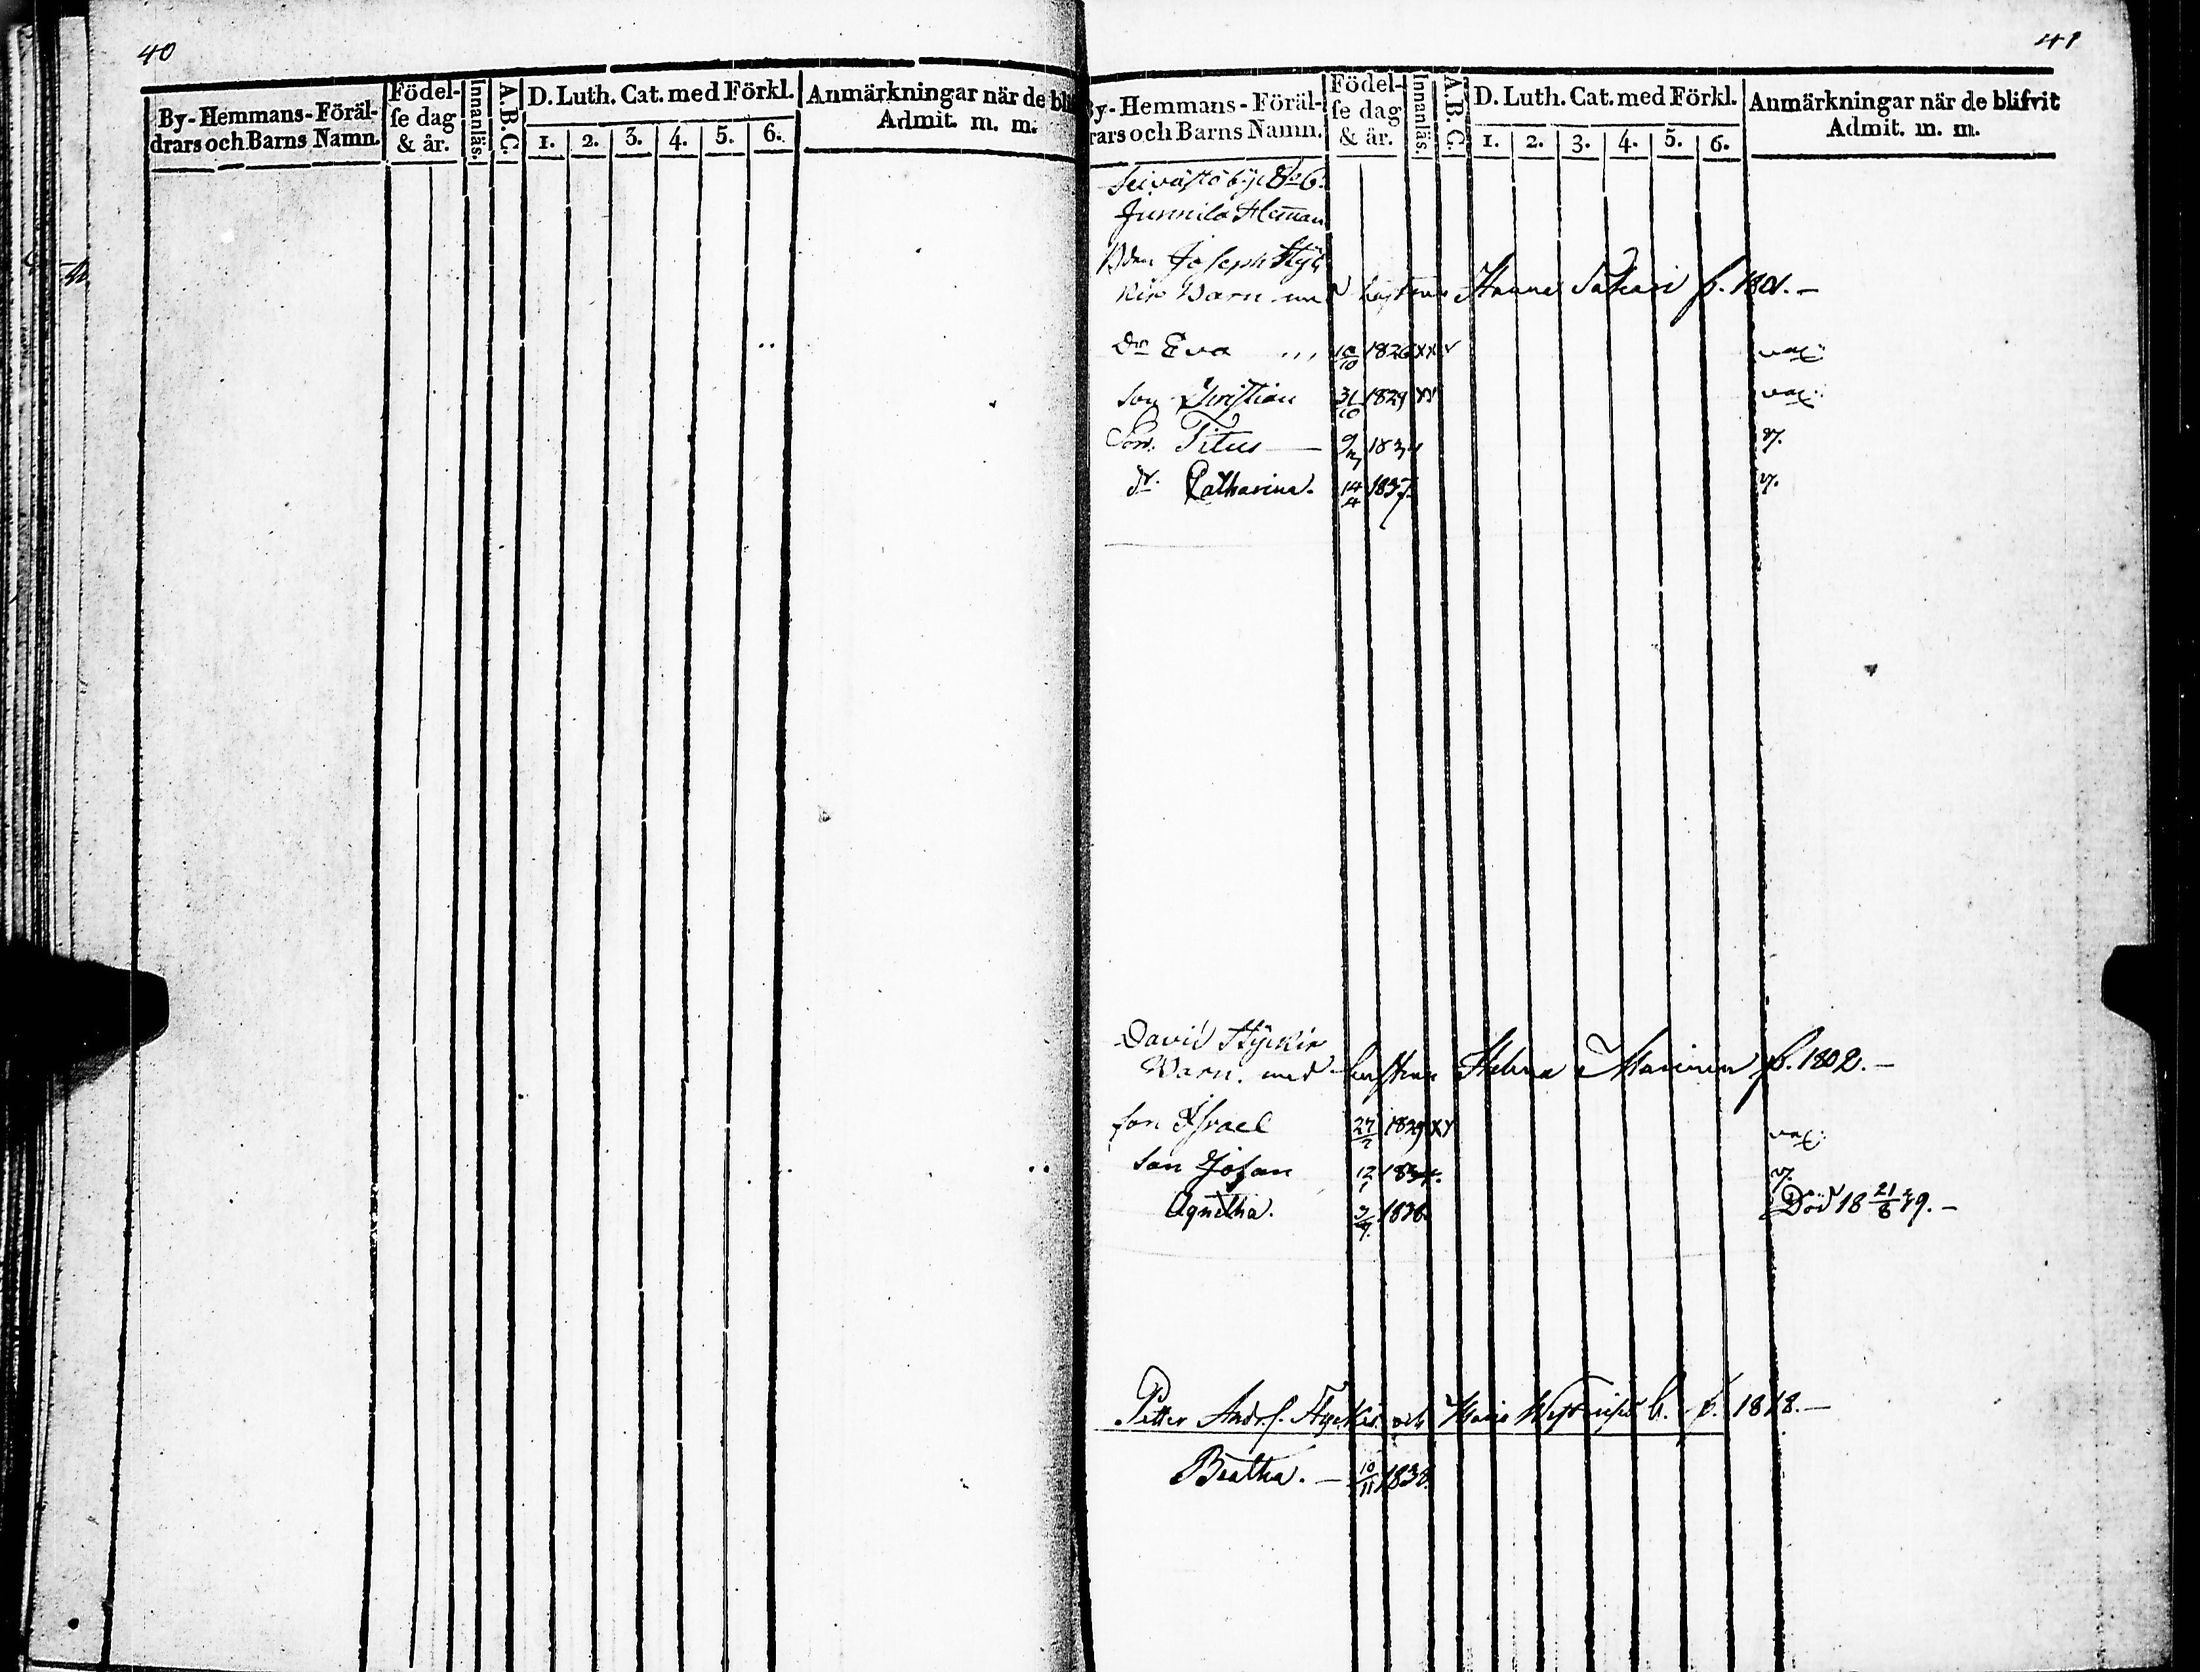 40
By-Hemmans-Föräl-
drars och Barns Namn.
Födel-
se dag
& år.
Innanläs.
A.B.C.
D. Luth. Cat. med Förkl.
1. 2. 3. 4. 5. 6.
Anmärkningar när de bli
Admit. m. m.
41
By-Hemmans-Föräl-
rars och Barns Namn.
Födel-
se dag
& år.
Innanläs.
A.B.C.
D. Luth. Cat. med Förkl.
1. 2. 3. 4. 5. 6.
Anmärkningar när de blifvit
Admit. m. m.
Seivästö by No 6.
Junnila Heman
Bden Joseph Hyc
kir Barn med hustrun Hanna f. 1801. -
Dr Eva 10/10 1826 xx v vac:
son Christian 31/10 1829 xx vac:
Son. Titus - 9/3 183 v.
dr. Catharina. 14/4 1837. v.
David Hyckir
Barn. med hustrun Helena f. 1802. -
son Israel 27/7 1829 xx vac:
son Johan 12/1 1834. v.
Agnetha. 3/9 1836. Död 18 21/6 39. -
Petter Andrs. Hyckir och Maria f. 1818. -
Beatha. - 10/11 1838.